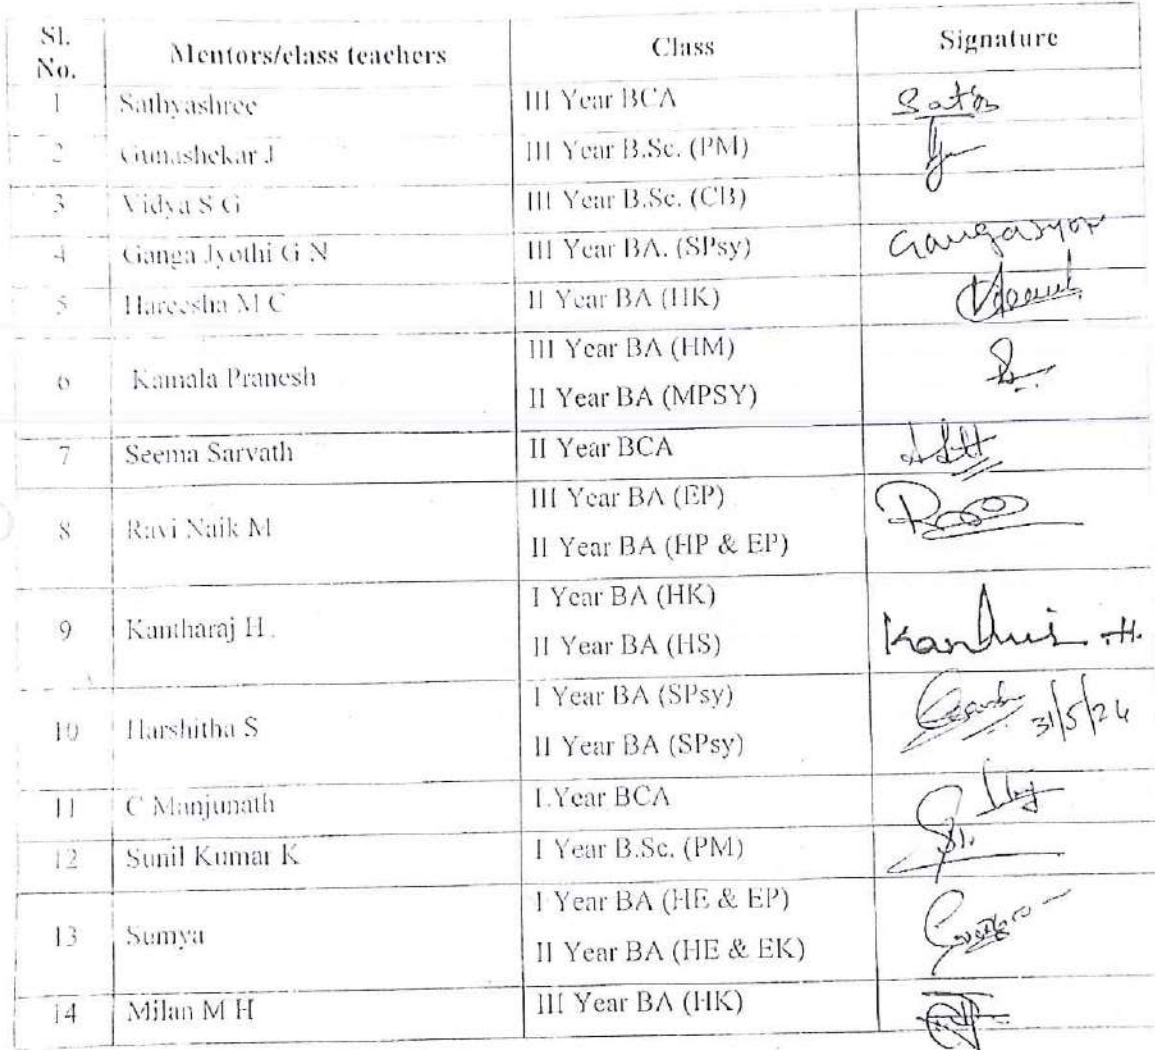 Sl. No. Mentors/class teachers Class Signature
1 Sathyashree III Year BCA
2 Gunashekar J III Year B.Sc. (PM)
3 Vidya S G III Year B.Sc. (CB)
4 Ganga Jyothi G N III Year BA. (SPsy)
5 Hareesha M C II Year BA (HK)
6 Kamala Pranesh III Year BA (HM)
II Year BA (MPSY)
7 Seema Sarvath II Year BCA
8 Ravi Naik M III Year BA (EP)
II Year BA (HP & EP)
9 Kantharaj H. I Year BA (HK)
II Year BA (HS)
10 Harshitha S I Year BA (SPsy)
II Year BA (SPsy) 31/5/24
11 C Manjunath I Year BCA
12 Sunil Kumar K I Year B.Sc. (PM)
13 Sumya I Year BA (HE & EP)
II Year BA (HE & EK)
14 Milan M H III Year BA (HK)